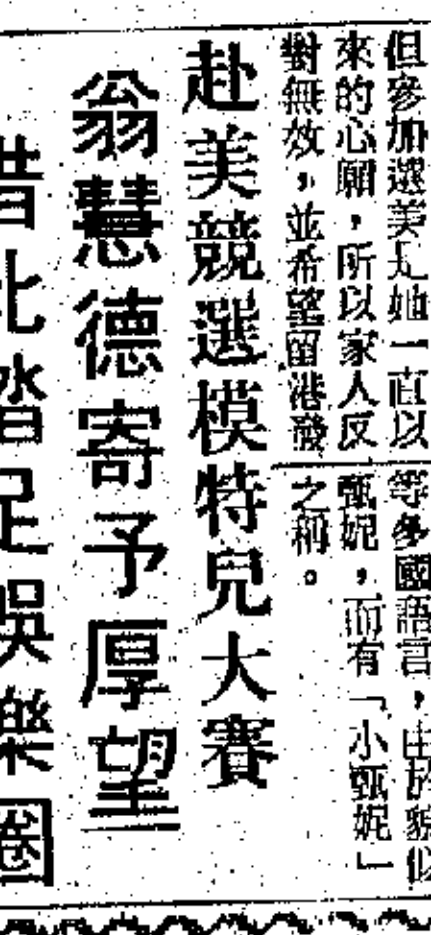 但參加選美是她一直以
來的心願，所以家人反
對無效，並希望留港發
等多國語言，由於貌似
甄妮，而有「小甄妮」
之稱。
赴美競選模特兒大賽
翁慧德寄予厚望
借此踏足娛樂圈